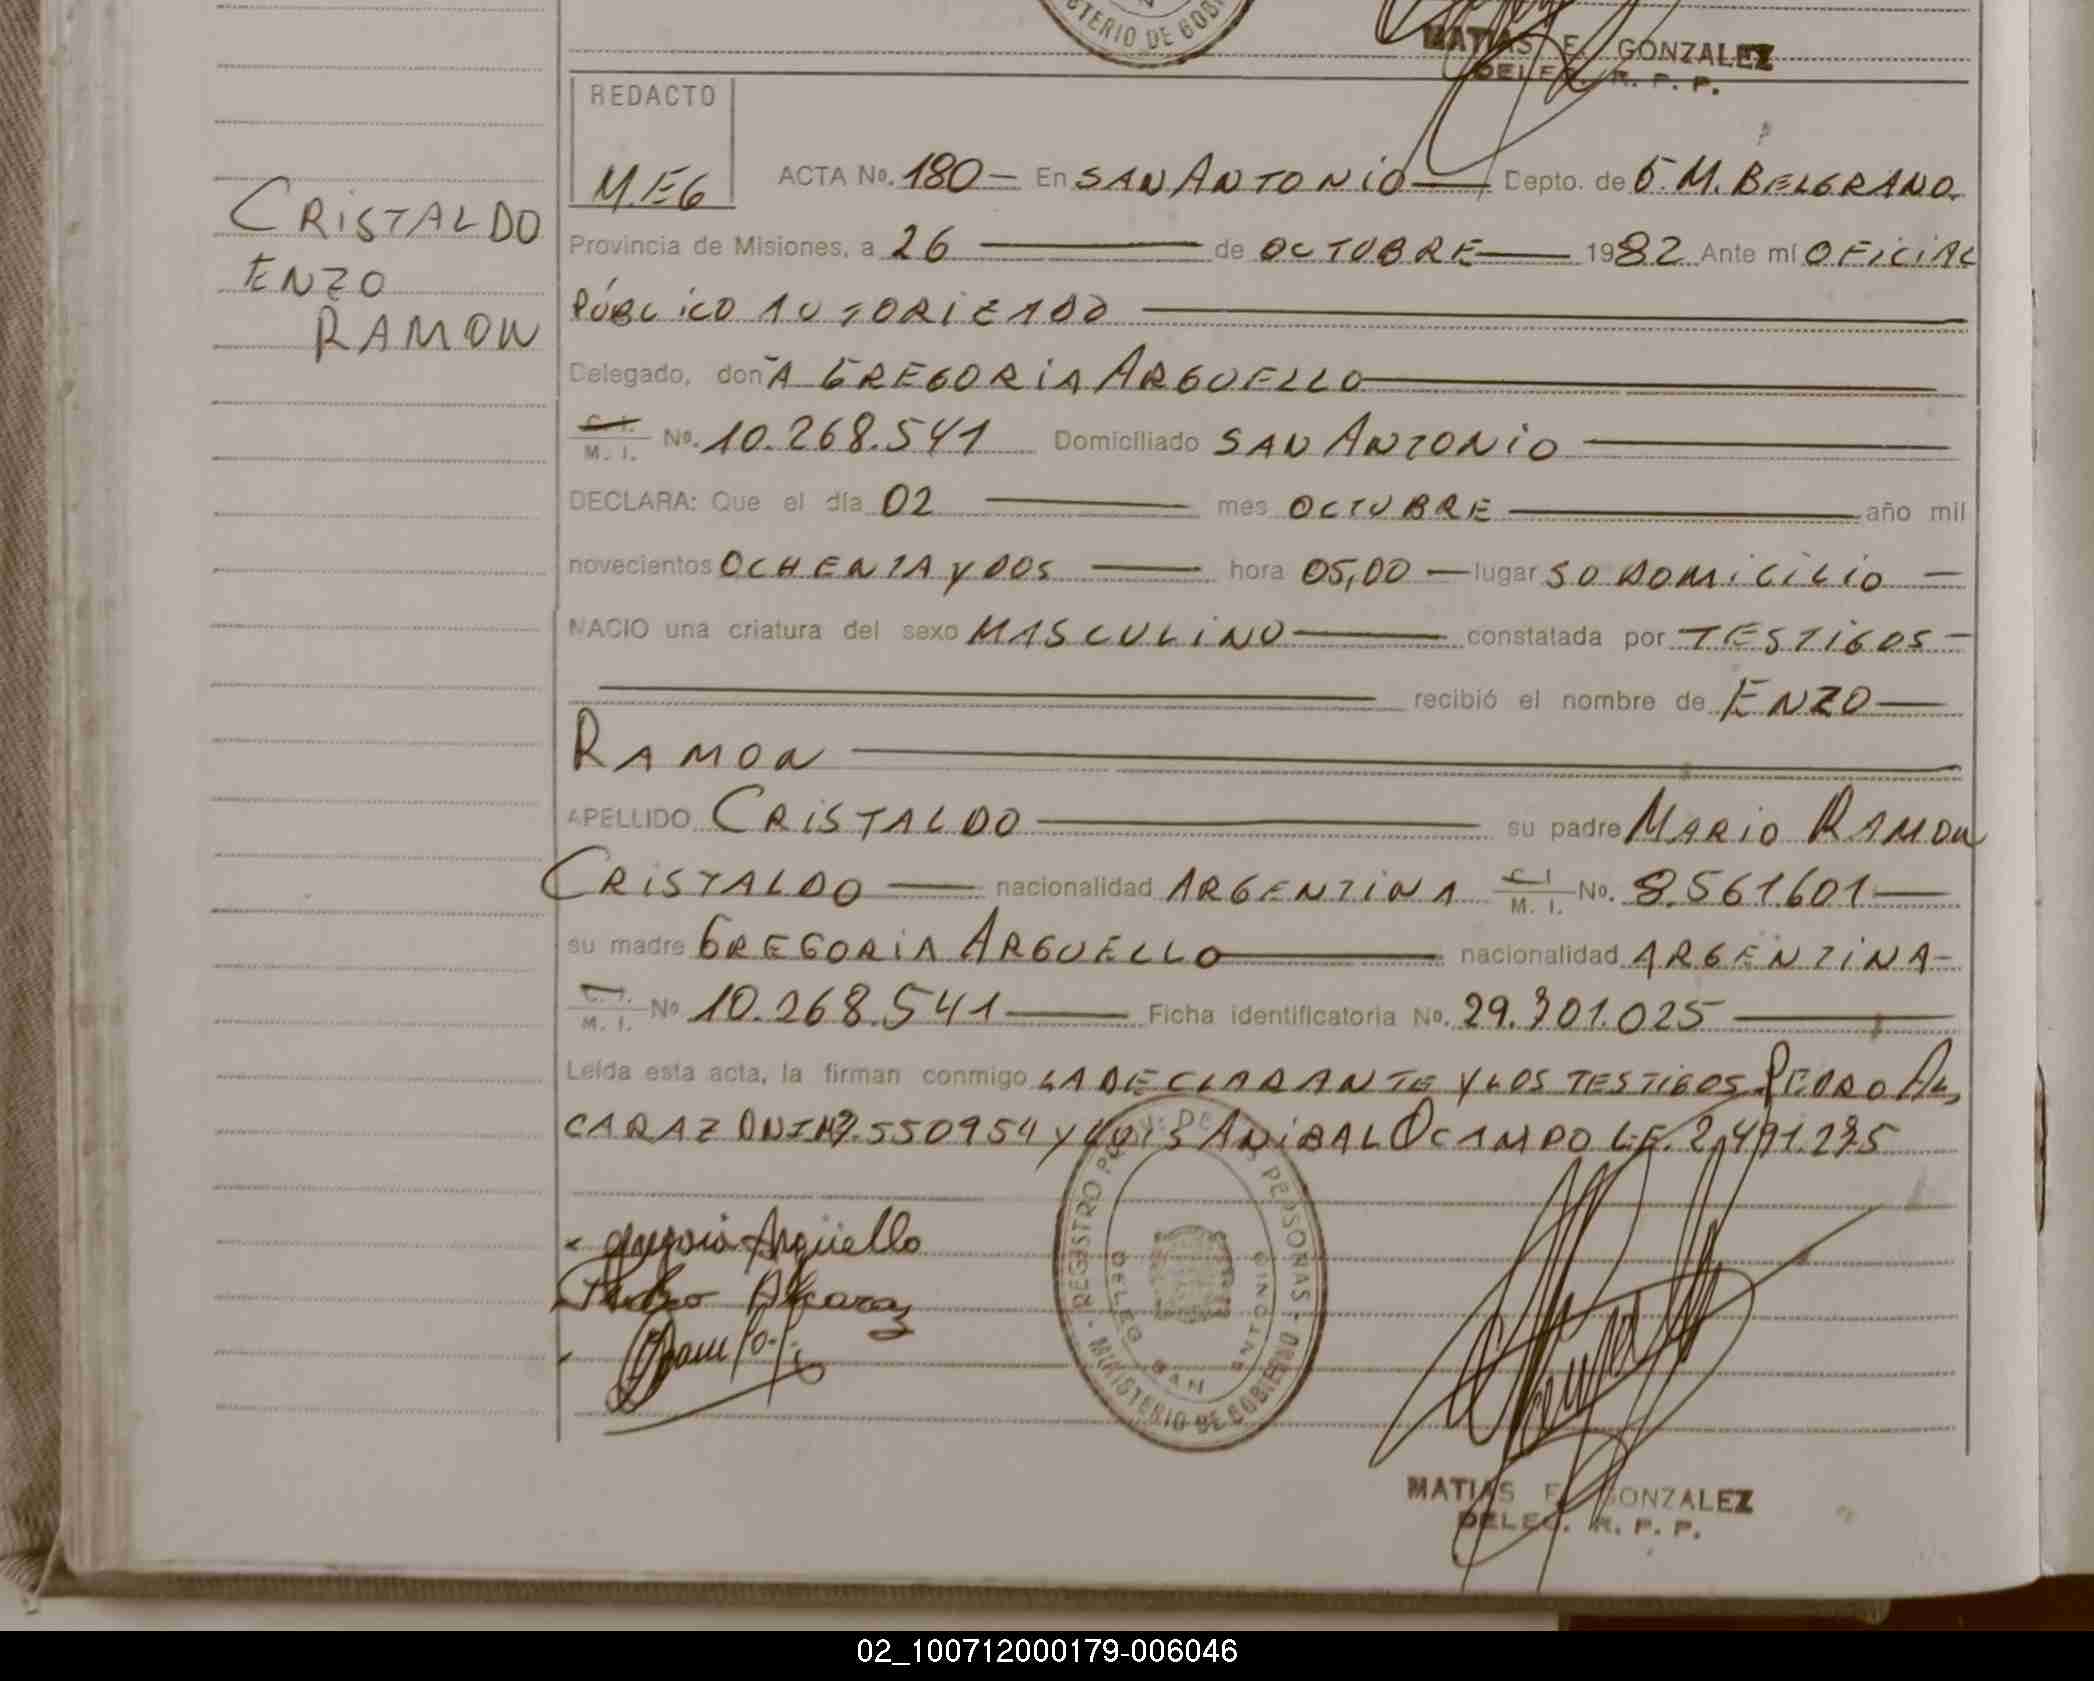 MINISTERIO DE GOBI
MATIAS E. GONZALEZ
DELEG. R. P. P.
REDACTO
M.E.G
ACTA No. 180 — En SAN ANTONIO — Depto. de G. M. BELGRANO.
CRISTALDO
ENZO
RAMON
Provincia de Misiones, a 26 — de OCTUBRE — 1982 Ante mí OFICIAL
PÚBLICO AUTORIZADO —
Delegado, doñA GREGORIA ARGUELLO —
C. I.
M. I. No. 10.268.541 Domiciliado SAN ANTONIO —
DECLARA: Que el día 02 — mes OCTUBRE — año mil
novecientos OCHENTA y DOS — hora 05,00 — lugar SU DOMICILIO —
NACIO una criatura del sexo MASCULINO — constatada por TESTIGOS —
— recibió el nombre de ENZO —
RAMON —
APELLIDO CRISTALDO — su padre MARIO RAMON
CRISTALDO — nacionalidad ARGENTINA C. I.
M. I. No. 8.561.601 —
su madre GREGORIA ARGUELLO — nacionalidad ARGENTINA —
C. I.
M. I. No 10.268.541 — Ficha identificatoria No. 29.701.025 —
Leída esta acta, la firman conmigo LA DECLARANTE Y LOS TESTIGOS PEDRO AL,
CARAZ DNI 550954 y LUIS ANIBAL OCAMPO L.E.
Gregoria Argüello
Pedro Alcaraz
REGISTRO PROV. DE LAS PERSONAS
DELEG. SAN ANTONIO
MINISTERIO DE GOBIERNO
MATIAS E. GONZALEZ
DELEG. R. P. P.
02_100712000179-006046